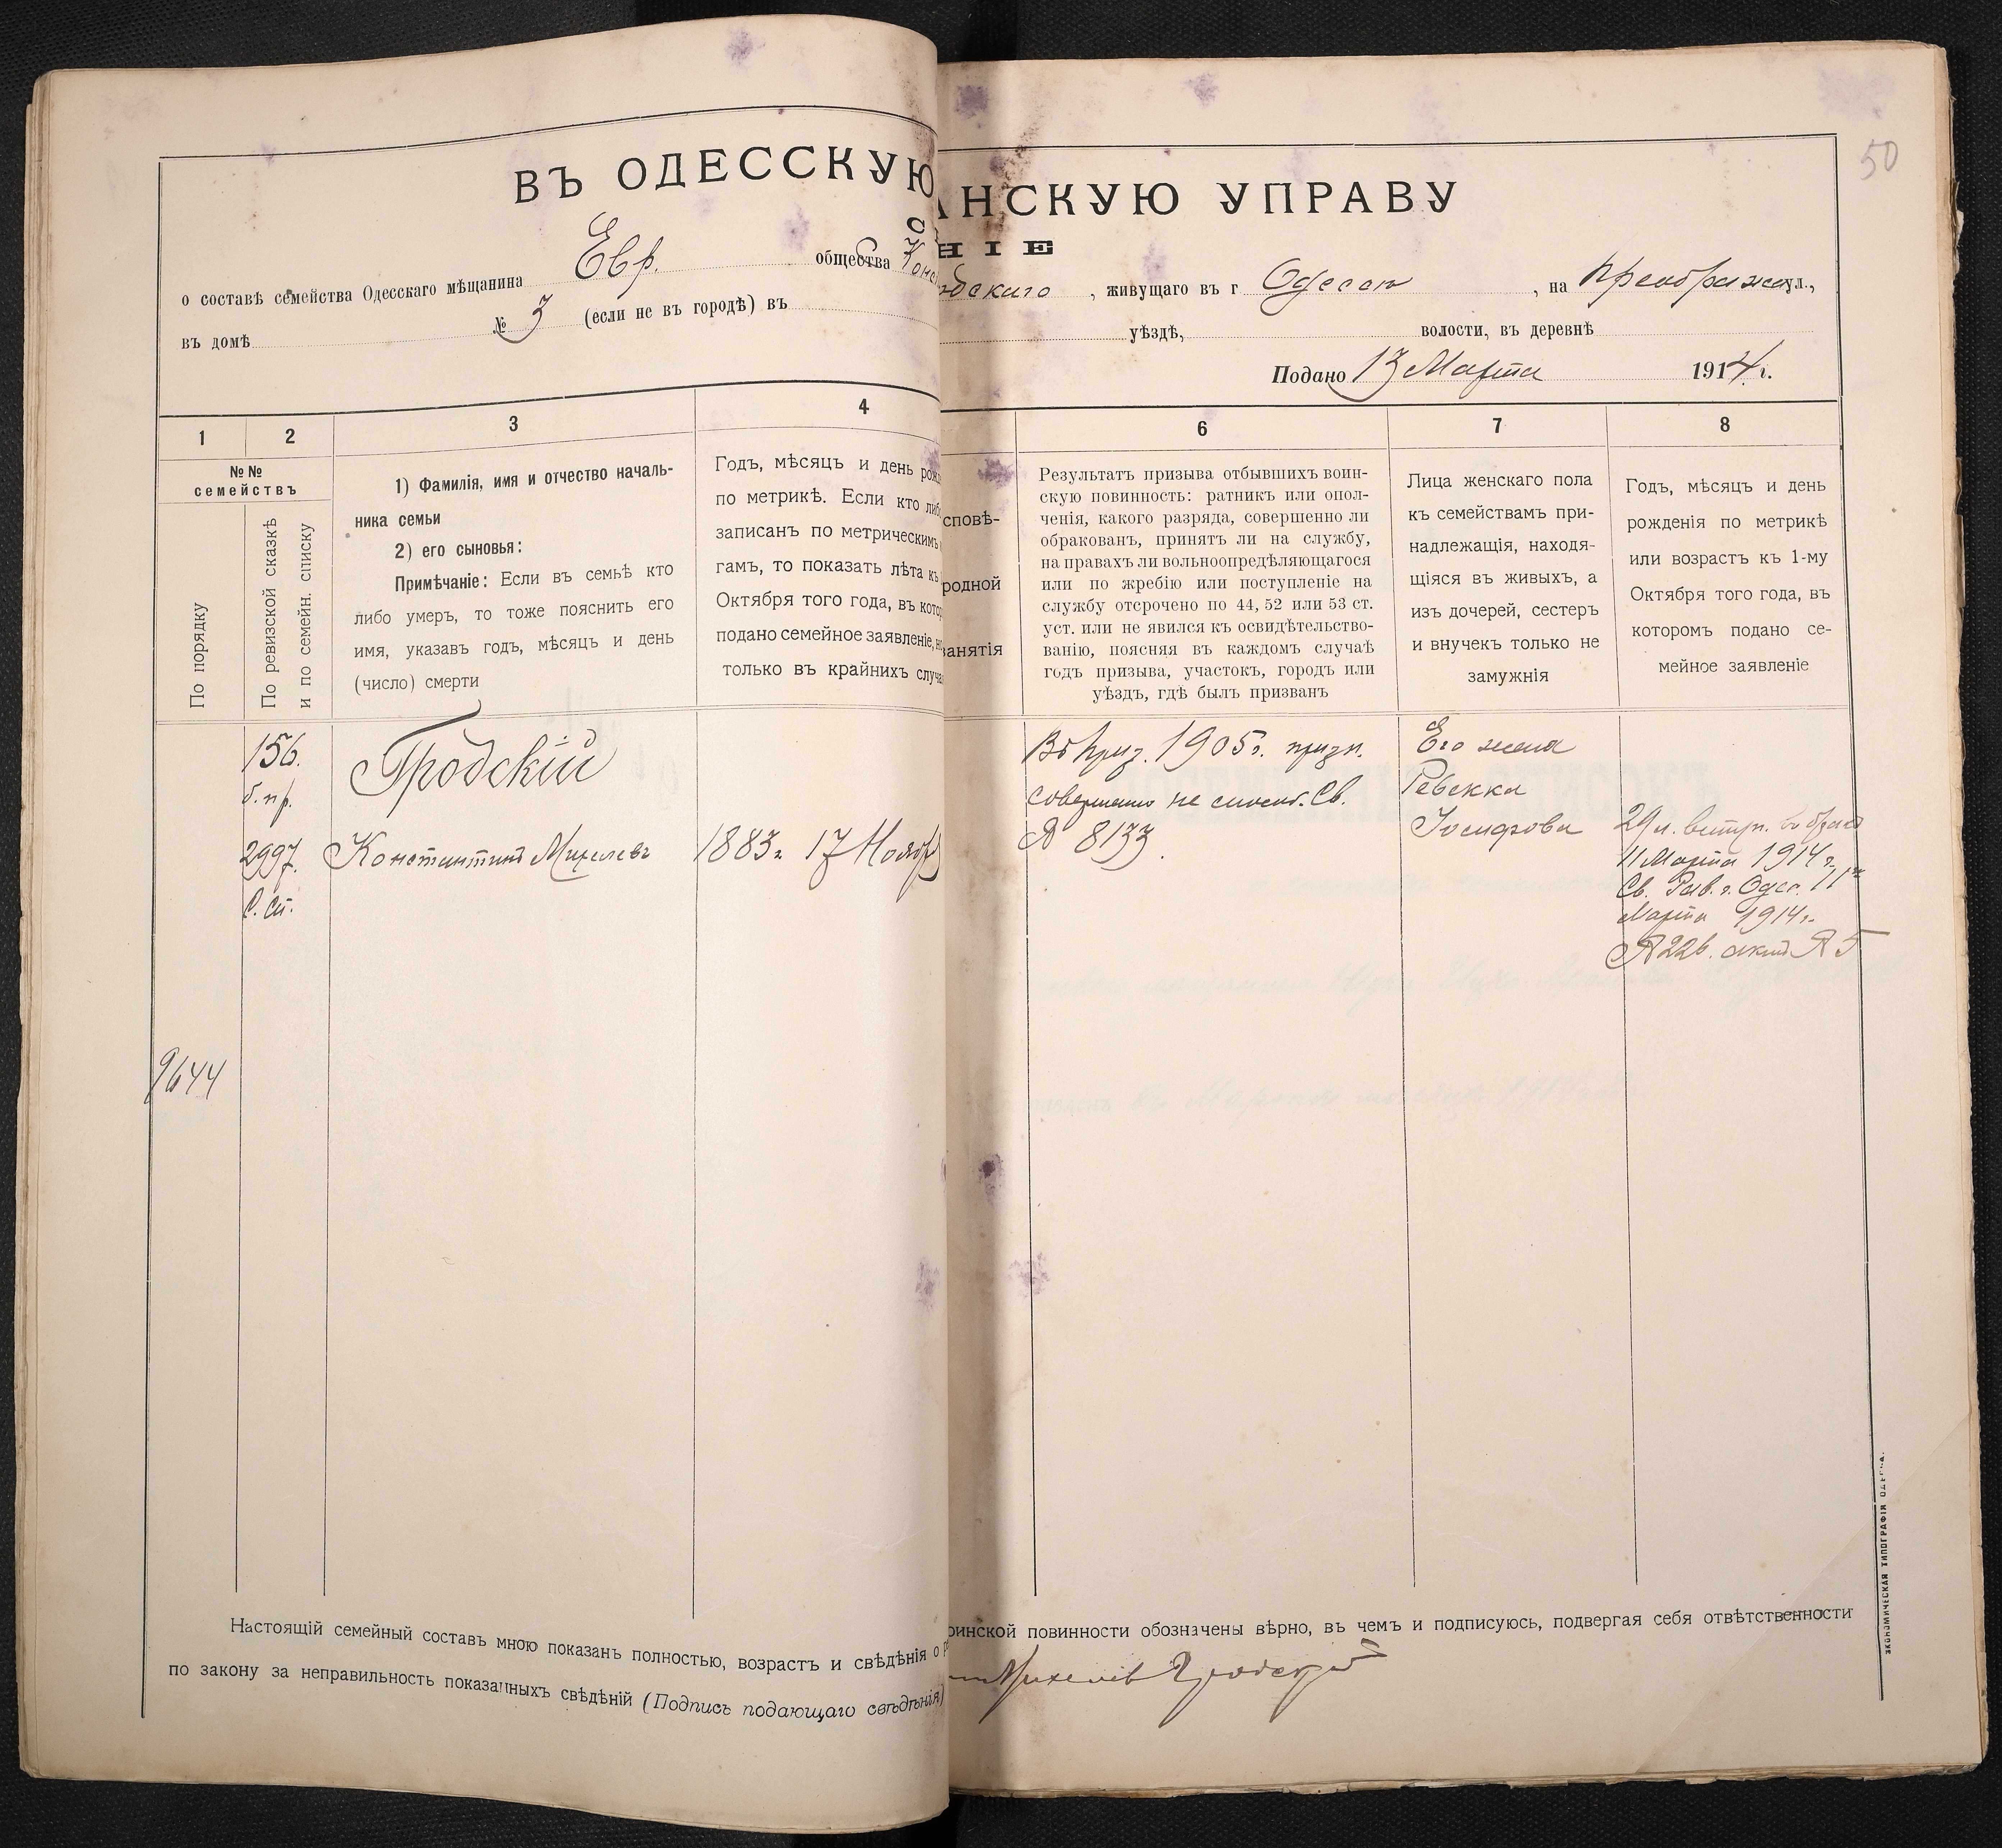 50
ВЪ ОДЕССКУЮ АНСКУЮ УПРАВУ
НІЕ
о составѣ семейства Одесскаго мѣщанина Евр. общества , живущаго въ г Одессѣ , на Преображен ул.,
въ домѣ № 3 (если не въ городѣ) въ уѣздѣ, волости, въ деревнѣ
Подано 13 Марта 1914 г.
1 2 3 4 6 7 8
№№
семействъ
По порядку
По ревизской сказкѣ
и по семейн. списку
1) Фамилія, имя и отчество началь-
ника семьи
2) его сыновья:
Примѣчаніе: Если въ семьѣ кто
либо умеръ, то тоже пояснить его
имя, указавъ годъ, мѣсяцъ и день
(число) смерти
Годъ, мѣсяцъ и день рож
по метрикѣ. Если кто либ
записанъ по метрическимъ
гамъ, то показать лѣта къ
Октября того года, въ кото
подано семейное заявленіе, но
только въ крайнихъ случа
сповѣ-
родной
анятія
Результатъ призыва отбывшихъ воин-
скую повинность: ратникъ или опол-
ченія, какого разряда, совершенно ли
обракованъ, принятъ ли на службу,
на правахъ ли вольноопредѣляющагося
или по жребію или поступленіе на
службу отсрочено по 44, 52 или 53 ст.
уст. или не явился къ освидѣтельство-
ванію, поясняя въ каждомъ случаѣ
годъ призыва, участокъ, городъ или
уѣздъ, гдѣ былъ призванъ
Лица женскаго пола
къ семействамъ при-
надлежащія, находя-
щіяся въ живыхъ, а
изъ дочерей, сестеръ
и внучекъ только не
замужнія
Годъ, мѣсяцъ и день
рожденія по метрикѣ
или возрастъ къ 1-му
Октября того года, въ
которомъ подано се-
мейное заявленіе
156.
б. пр.
2997.
С. сп.
9644
Гродскій
Константинъ Михелевъ
1883 г. 17 Нояб
Въ приз. 1905 г. призн.
совершенно не способ. Св.
№ 8133.
Его жена
Ревекка
Іосифова
29 л. вступ. въ бракъ
11 Марта 1914 г.
Св. Рав. г. Одес. 11
Марта 1914 г.
№ 226. актъ № 5
Настоящій семейный составъ мною показанъ полностью, возрастъ и свѣдѣнія о инской повинности обозначены вѣрно, въ чемъ и подписуюсь, подвергая себя отвѣтственности
по закону за неправильность показанныхъ свѣдѣній (Подпись подающаго свѣдѣнія) Михелевъ Гродскій
ЭКОНОМИЧЕСКАЯ ТИПОГРАФІЯ ОДЕССА.